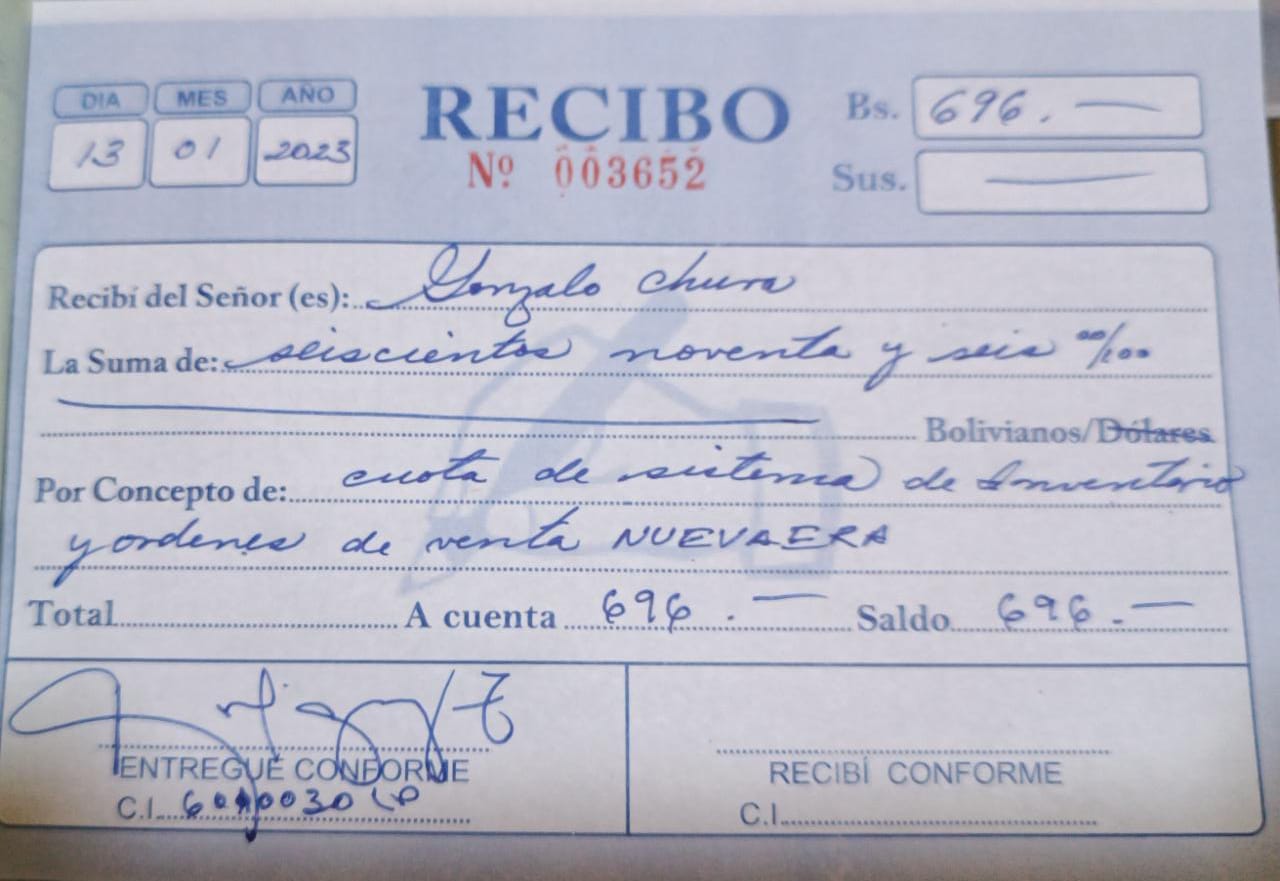 DIA MES AÑO
13 01 2023
RECIBO
Nº 003652
Bs. 696.—
Sus. —
Recibí del Señor (es): Gonzalo Chura
La Suma de: seiscientos noventa y seis 00/100
Bolivianos/Dólares
Por Concepto de: cuota de sistema de Inventario
y ordenes de venta NUEVAERA
Total A cuenta 696.— Saldo 696.—
ENTREGUÉ CONFORME
C.I.
RECIBÍ CONFORME
C.I.